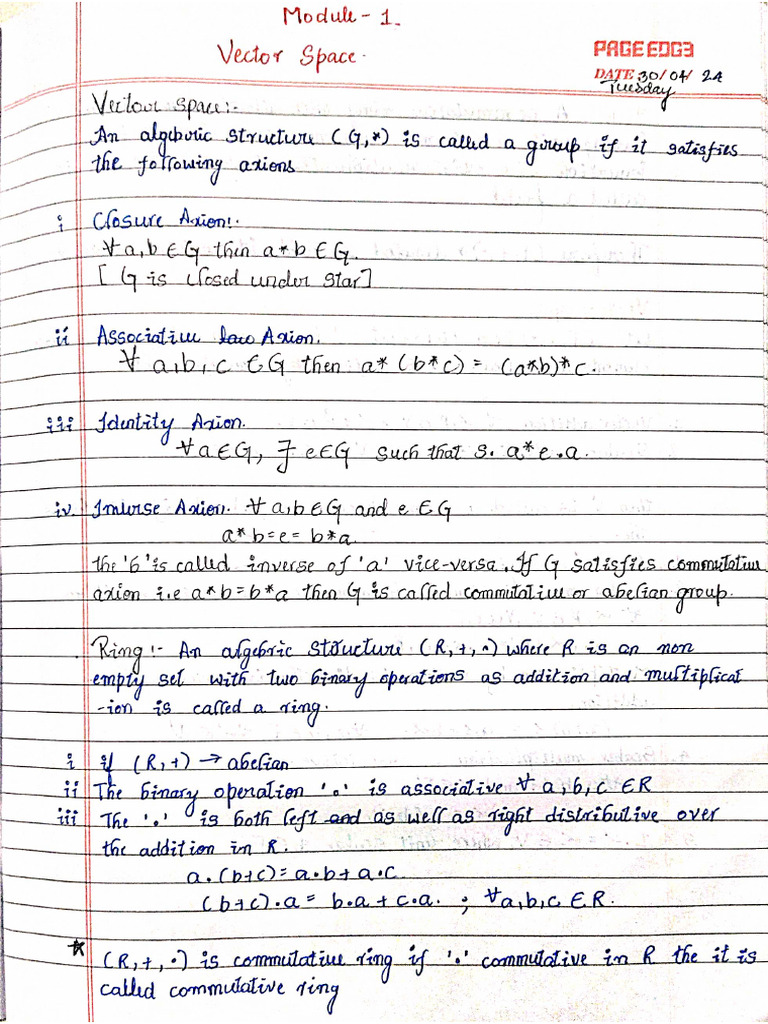 Module - 1.
Vector Space.
PAGE EDGE
DATE 30/04/24
Tuesday
Vectour space:-
An algebric structure (G,*) is called a group if it satisfies
the following axions
i Closure Axion:.
∀ a,b ∈ G then a*b ∈ G.
[ G is closed under star]
ii Associative law Axion.
∀ a,b,c ∈ G then a* (b*c) = (a*b)*c.
iii Identity Axion.
∀ a ∈ G, ∃ e ∈ G such that s. a*e.a.
iv. Inverse Axion. ∀ a,b ∈ G and e ∈ G
a*b=e=b*a.
the 'b' is called inverse of 'a' vice-versa. If G satisfies commutative
axion i.e a*b=b*a then G is called commutative or abelian group.
Ring:- An algebric structure (R,+,.) where R is an non
empty set with two binary operations as addition and multiplicat
-ion is called a ring.
i if (R,+) → abelian
ii The binary operation '.' is associative ∀ a,b,c ∈ R
iii The '.' is both left and as well as right distributive over
the addition in R.
a.(b+c)=a.b+a.c.
(b+c).a = b.a+c.a. ; ∀ a,b,c ∈ R.
* (R,+,.) is commutative ring if '.' commutative in R the it is
called commutative ring